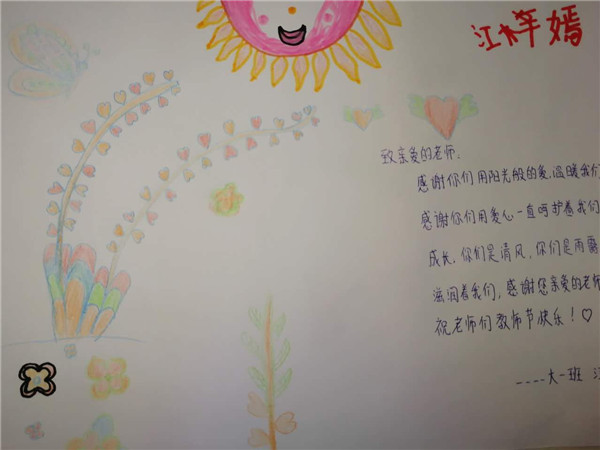 江梓嫣
致亲爱的老师.
感谢你们用阳光般的爱,温暖我们
感谢你们用爱心一直呵护着我们
成长,你们是清风,你们是雨露
滋润着我们,感谢您亲爱的老师
祝老师们教师节快乐!♡
----大一班 江